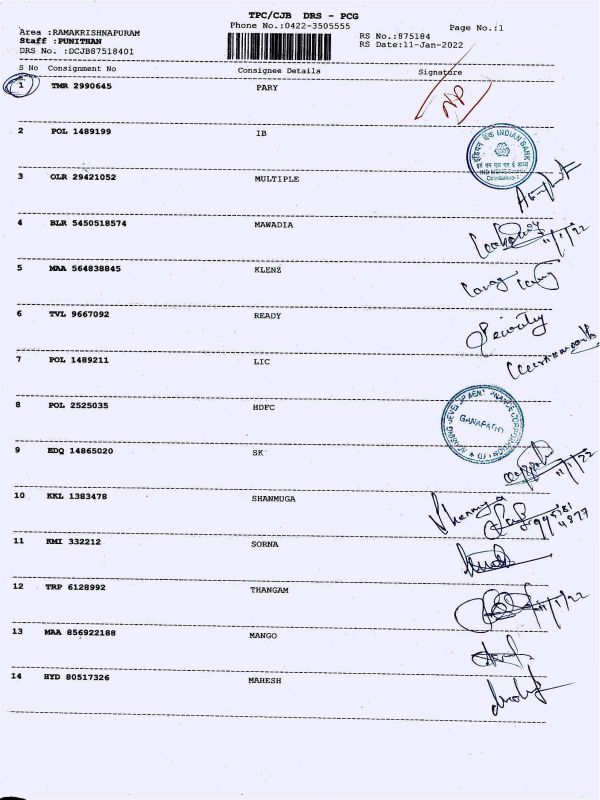 TPC/CJB DRS - PCG
Phone No.:0422-3505555
Page No.:1
Area :RAMAKRISHNAPURAM
Staff :PUNITHAN
DRS No. :DCJB87518401
RS No.:875184
RS Date:11-Jan-2022
S No Consignment No Consignee Details Signature
1 TMR 2990645 PARY NP
2 POL 1489199 IB
इंडियन बैंक INDIAN BANK
Coimbatore-1
3 OLR 29421052 MULTIPLE
4 BLR 5450518574 MAWADIA
11/1/22
5 MAA 564838845 KLENZ
6 TVL 9667092 READY
7 POL 1489211 LIC
8 POL 2525035 HDFC
HOUSING DEVELOPMENT FINANCE CORPORATION LTD
GANAPATHY
9 EDQ 14865020 SK
11/1/22
10 KKL 1383478 SHANMUGA
11 KMI 332212 SORNA
12 TRP 6128992 THANGAM
11/1/22
13 MAA 856922188 MANGO
14 HYD 80517326 MAHESH